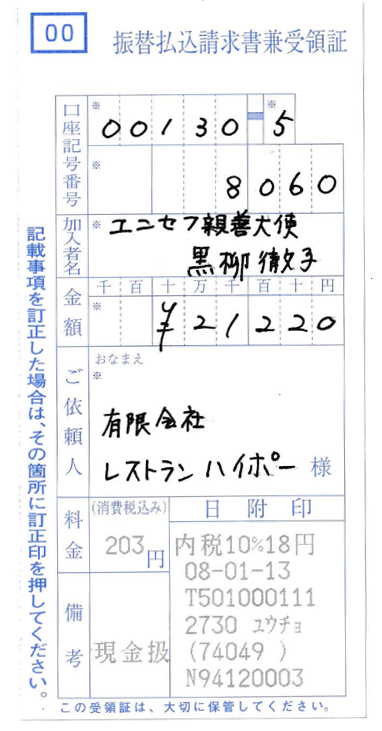 00
振替払込請求書兼受領証
口座記号番号
※ 00130-※5
※ 8060
加入者名
※ エニセフ親善大使
黒柳徹子
金額
千 百 十 万 千 百 十 円
※ ¥21220
ご依頼人
おなまえ
※
有限会社
レストランハイポー 様
料金
(消費税込み)
203円
備考
現金扱
日附印
内税10%18円
08-01-13
T501000111
2730 ユウチョ
(74049 )
N94120003
記載事項を訂正した場合は、その箇所に訂正印を押してください。
この受領証は、大切に保管してください。